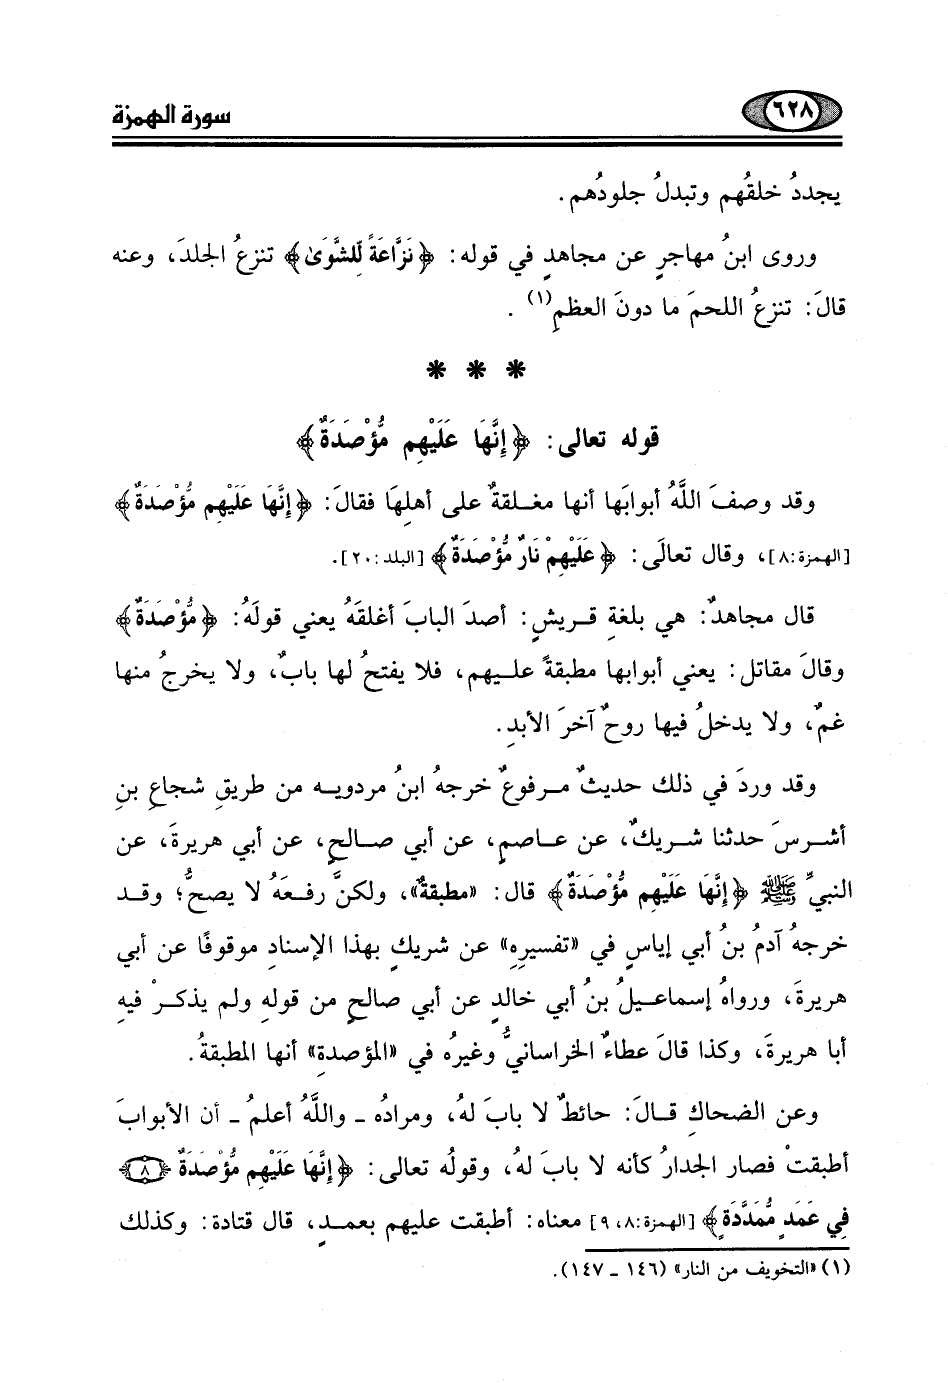 ٦٢٨ سورة الهمزة
يجددُ خلقُهم وتبدلُ جلودُهم .
وروى ابنُ مهاجرٍ عن مجاهدٍ في قوله : ﴿نَزَّاعَةً لِّلشَّوَىٰ﴾ تنزعُ الجلدَ، وعنه
قالَ : تنزعُ اللحمَ ما دونَ العظمِ(١) .
* * *
قوله تعالى : ﴿إِنَّهَا عَلَيْهِم مُّؤْصَدَةٌ﴾
وقد وصفَ اللَّهُ أبوابَها أنها مغلقةٌ على أهلِها فقالَ : ﴿إِنَّهَا عَلَيْهِم مُّؤْصَدَةٌ﴾
[الهمزة : ٨]، وقال تعالَى : ﴿عَلَيْهِمْ نَارٌ مُّؤْصَدَةٌ﴾ [البلد : ٢٠].
قال مجاهدٌ : هي بلغةِ قريشٍ : أصدَ البابَ أغلقَهُ يعني قولَهُ : ﴿مُّؤْصَدَةٌ﴾
وقالَ مقاتل : يعني أبوابها مطبقةً عليهم، فلا يفتحُ لها بابٌ، ولا يخرجُ منها
غمٌ، ولا يدخلُ فيها روحٌ آخرَ الأبدِ.
وقد وردَ في ذلك حديثٌ مرفوعٌ خرجهُ ابنُ مردويه من طريقِ شجاعِ بنِ
أشرسَ حدثنا شريكٌ، عن عاصمٍ، عن أبي صالحٍ، عن أبي هريرةَ، عن
النبيِّ ﷺ ﴿إِنَّهَا عَلَيْهِم مُّؤْصَدَةٌ﴾ قال : «مطبقةٌ»، ولكنَّ رفعَهُ لا يصحُّ؛ وقد
خرجهُ آدمُ بنُ أبي إياسٍ في «تفسيرِهِ» عن شريكٍ بهذا الإسنادِ موقوفًا عن أبي
هريرةَ، ورواهُ إسماعيلُ بنُ أبي خالدٍ عن أبي صالحٍ من قولهِ ولم يذكرْ فيهِ
أبا هريرةَ، وكذا قالَ عطاءٌ الخراسانيُّ وغيرُه في «المؤصدةِ» أنها المطبقةُ.
وعن الضحاكِ قالَ : حائطٌ لا بابَ لهُ، ومرادُه ـ واللَّهُ أعلمُ ـ أن الأبوابَ
أطبقتْ فصار الجدارُ كأنه لا بابَ لهُ، وقولُه تعالى : ﴿إِنَّهَا عَلَيْهِم مُّؤْصَدَةٌ ﴿٨﴾
فِي عَمَدٍ مُّمَدَّدَةٍ﴾ [الهمزة : ٨، ٩] معناه : أطبقت عليهم بعمدٍ، قال قتادة : وكذلك
(١) «التخويف من النار» (١٤٦ ـ ١٤٧).